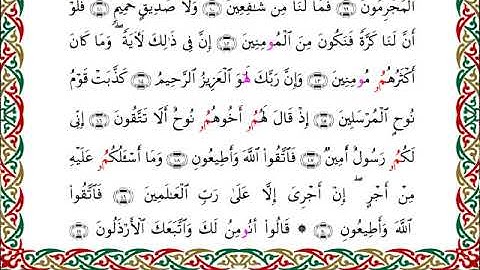 الْمُجْرِمُونَ ۝٩٩ فَمَا لَنَا مِن شَٰفِعِينَ ۝١٠٠ وَلَا صَدِيقٍ حَمِيمٍ ۝١٠١ فَلَوْ
أَنَّ لَنَا كَرَّةً فَنَكُونَ مِنَ الْمُومِنِينَ ۝١٠٢ إِنَّ فِي ذَٰلِكَ لَأٓيَةً ۖ وَمَا كَانَ
أَكْثَرُهُمُۥ مُومِنِينَ ۝١٠٣ وَإِنَّ رَبَّكَ لَهْوَ الْعَزِيزُ الرَّحِيمُ ۝١٠٤ كَذَّبَتْ قَوْمُ
نُوحٍ الْمُرْسَلِينَ ۝١٠٥ إِذْ قَالَ لَهُمُۥ أَخُوهُمُۥ نُوحٌ أَلَا تَتَّقُونَ ۝١٠٦ إِنِّي
لَكُمُۥ رَسُولٌ أَمِينٌ ۝١٠٧ فَاتَّقُوا اللَّهَ وَأَطِيعُونِ ۝١٠٨ وَمَا أَسْـَٔلُكُمُۥ عَلَيْهِ
مِنْ أَجْرٍ ۖ إِنْ أَجْرِيَ إِلَّا عَلَىٰ رَبِّ الْعَٰلَمِينَ ۝١٠٩ فَاتَّقُوا
اللَّهَ وَأَطِيعُونِ ۝١١٠ ۞ قَالُوا أَنُومِنُ لَكَ وَاتَّبَعَكَ الْأَرْذَلُونَ ۝١١١